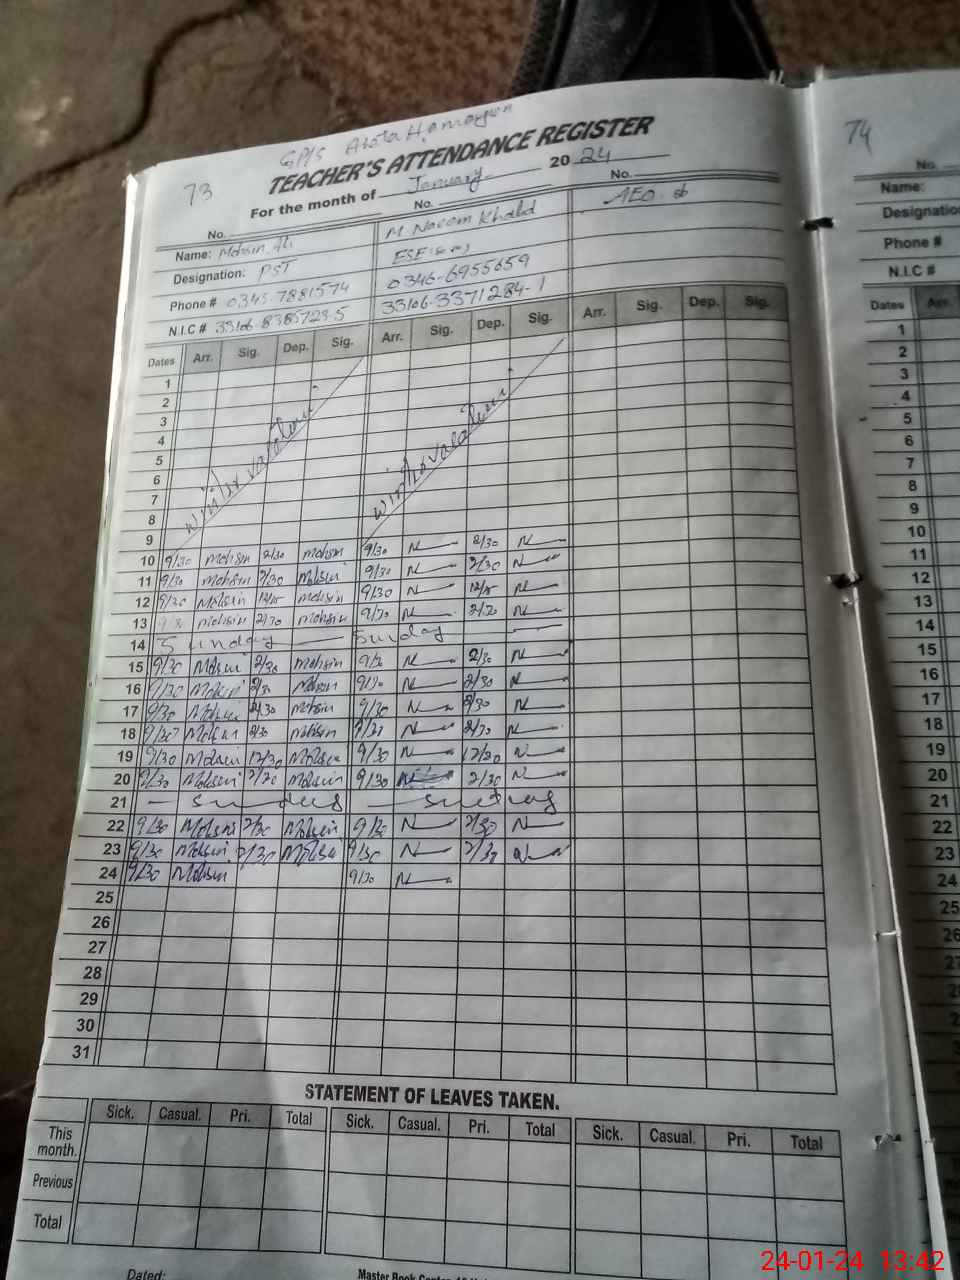 GP/S
73
TEACHER'S ATTENDANCE REGISTER
For the month of January 20 24
No. No. No.
Name: Mohsin Ali M Naeem Khalid AEO
Designation: PST ESE
Phone # 0345-7881574 0346-6955659
N.I.C # 33106-8385723-5 33106-3371284-1
Dates Arr. Sig. Dep. Sig. Arr. Sig. Dep. Sig. Arr. Sig. Dep. Sig.
1
2
3
4
5
6
7
8
9
winter winter
10 9/30 Mohsin 2/30 Mohsin 9/30 N 2/30 N
11 9/30 Mohsin 2/30 Mohsin 9/30 N 2/30 N
12 9/30 Mohsin Mohsin 9/30 N N
13 9/30 Mohsin 2/30 Mohsin 9/30 N 2/30 N
14 Sunday Sunday
15 9/30 Mohsin 2/30 Mohsin 9/30 N 2/30 N
16 9/30 Mohsin 2/30 Mohsin 9/30 N 2/30 N
17 9/30 Mohsin 2/30 Mohsin 9/30 N 2/30 N
18 9/30 Mohsin 2/30 Mohsin 9/30 N 2/30 N
19 9/30 Mohsin 12/30 Mohsin 9/30 N N
20 9/30 Mohsin 2/30 Mohsin 9/30 N 2/30 N
21 Sunday Sunday
22 9/30 Mohsin 2/30 Mohsin 9/30 N 2/30 N
23 9/30 Mohsin 2/30 Mohsin 9/30 N 2/30 N
24 9/30 Mohsin 9/30 N
25
26
27
28
29
30
31
STATEMENT OF LEAVES TAKEN.
Sick. Casual. Pri. Total Sick. Casual. Pri. Total Sick. Casual. Pri. Total
This month.
Previous
Total
Dated:
Master Book
74
No.
Name:
Designation
Phone #
N.I.C #
Dates Arr.
1
2
3
4
5
6
7
8
9
10
11
12
13
14
15
16
17
18
19
20
21
22
23
24
25
26
24-01-24 13:42